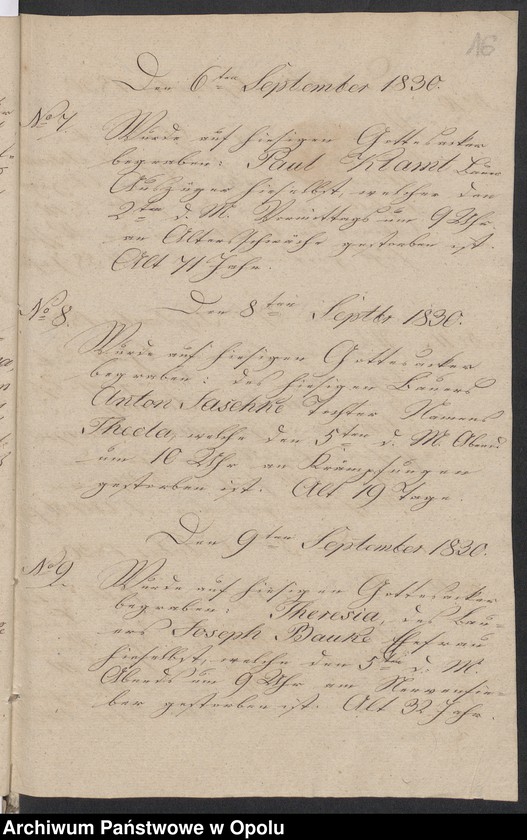 16
Den 6ten September 1830.
No 7. Wurde auf hiesigen Gottesacker
begraben: Paul Klamt Bauer
Auszüger hieselbst, welcher den
2ten d. M. Vormittags um 9 Uhr
an Altersschwäche gestorben ist.
Alt 71 Jahr.
Den 8ten Septbr 1830.
No 8. Wurde auf hiesigen Gottesacker
begraben: des hiesigen Bauers
Anton Jaschke Tochter Namens
Thecla, welche den 5ten d. M. Abend
um 10 Uhr an Krämpfungen
gestorben ist. Alt 19 Tage.
Den 9ten September 1830.
No 9. Wurde auf hiesigen Gottesacker
begraben: Theresia, des Bau-
ers Joseph Bauke Ehefrau
hieselbst, welche den 5ten d. M.
Abends um 9 Uhr am Nervenfie-
ber gestorben ist. Alt 32 Jahr.
Archiwum Państwowe w Opolu